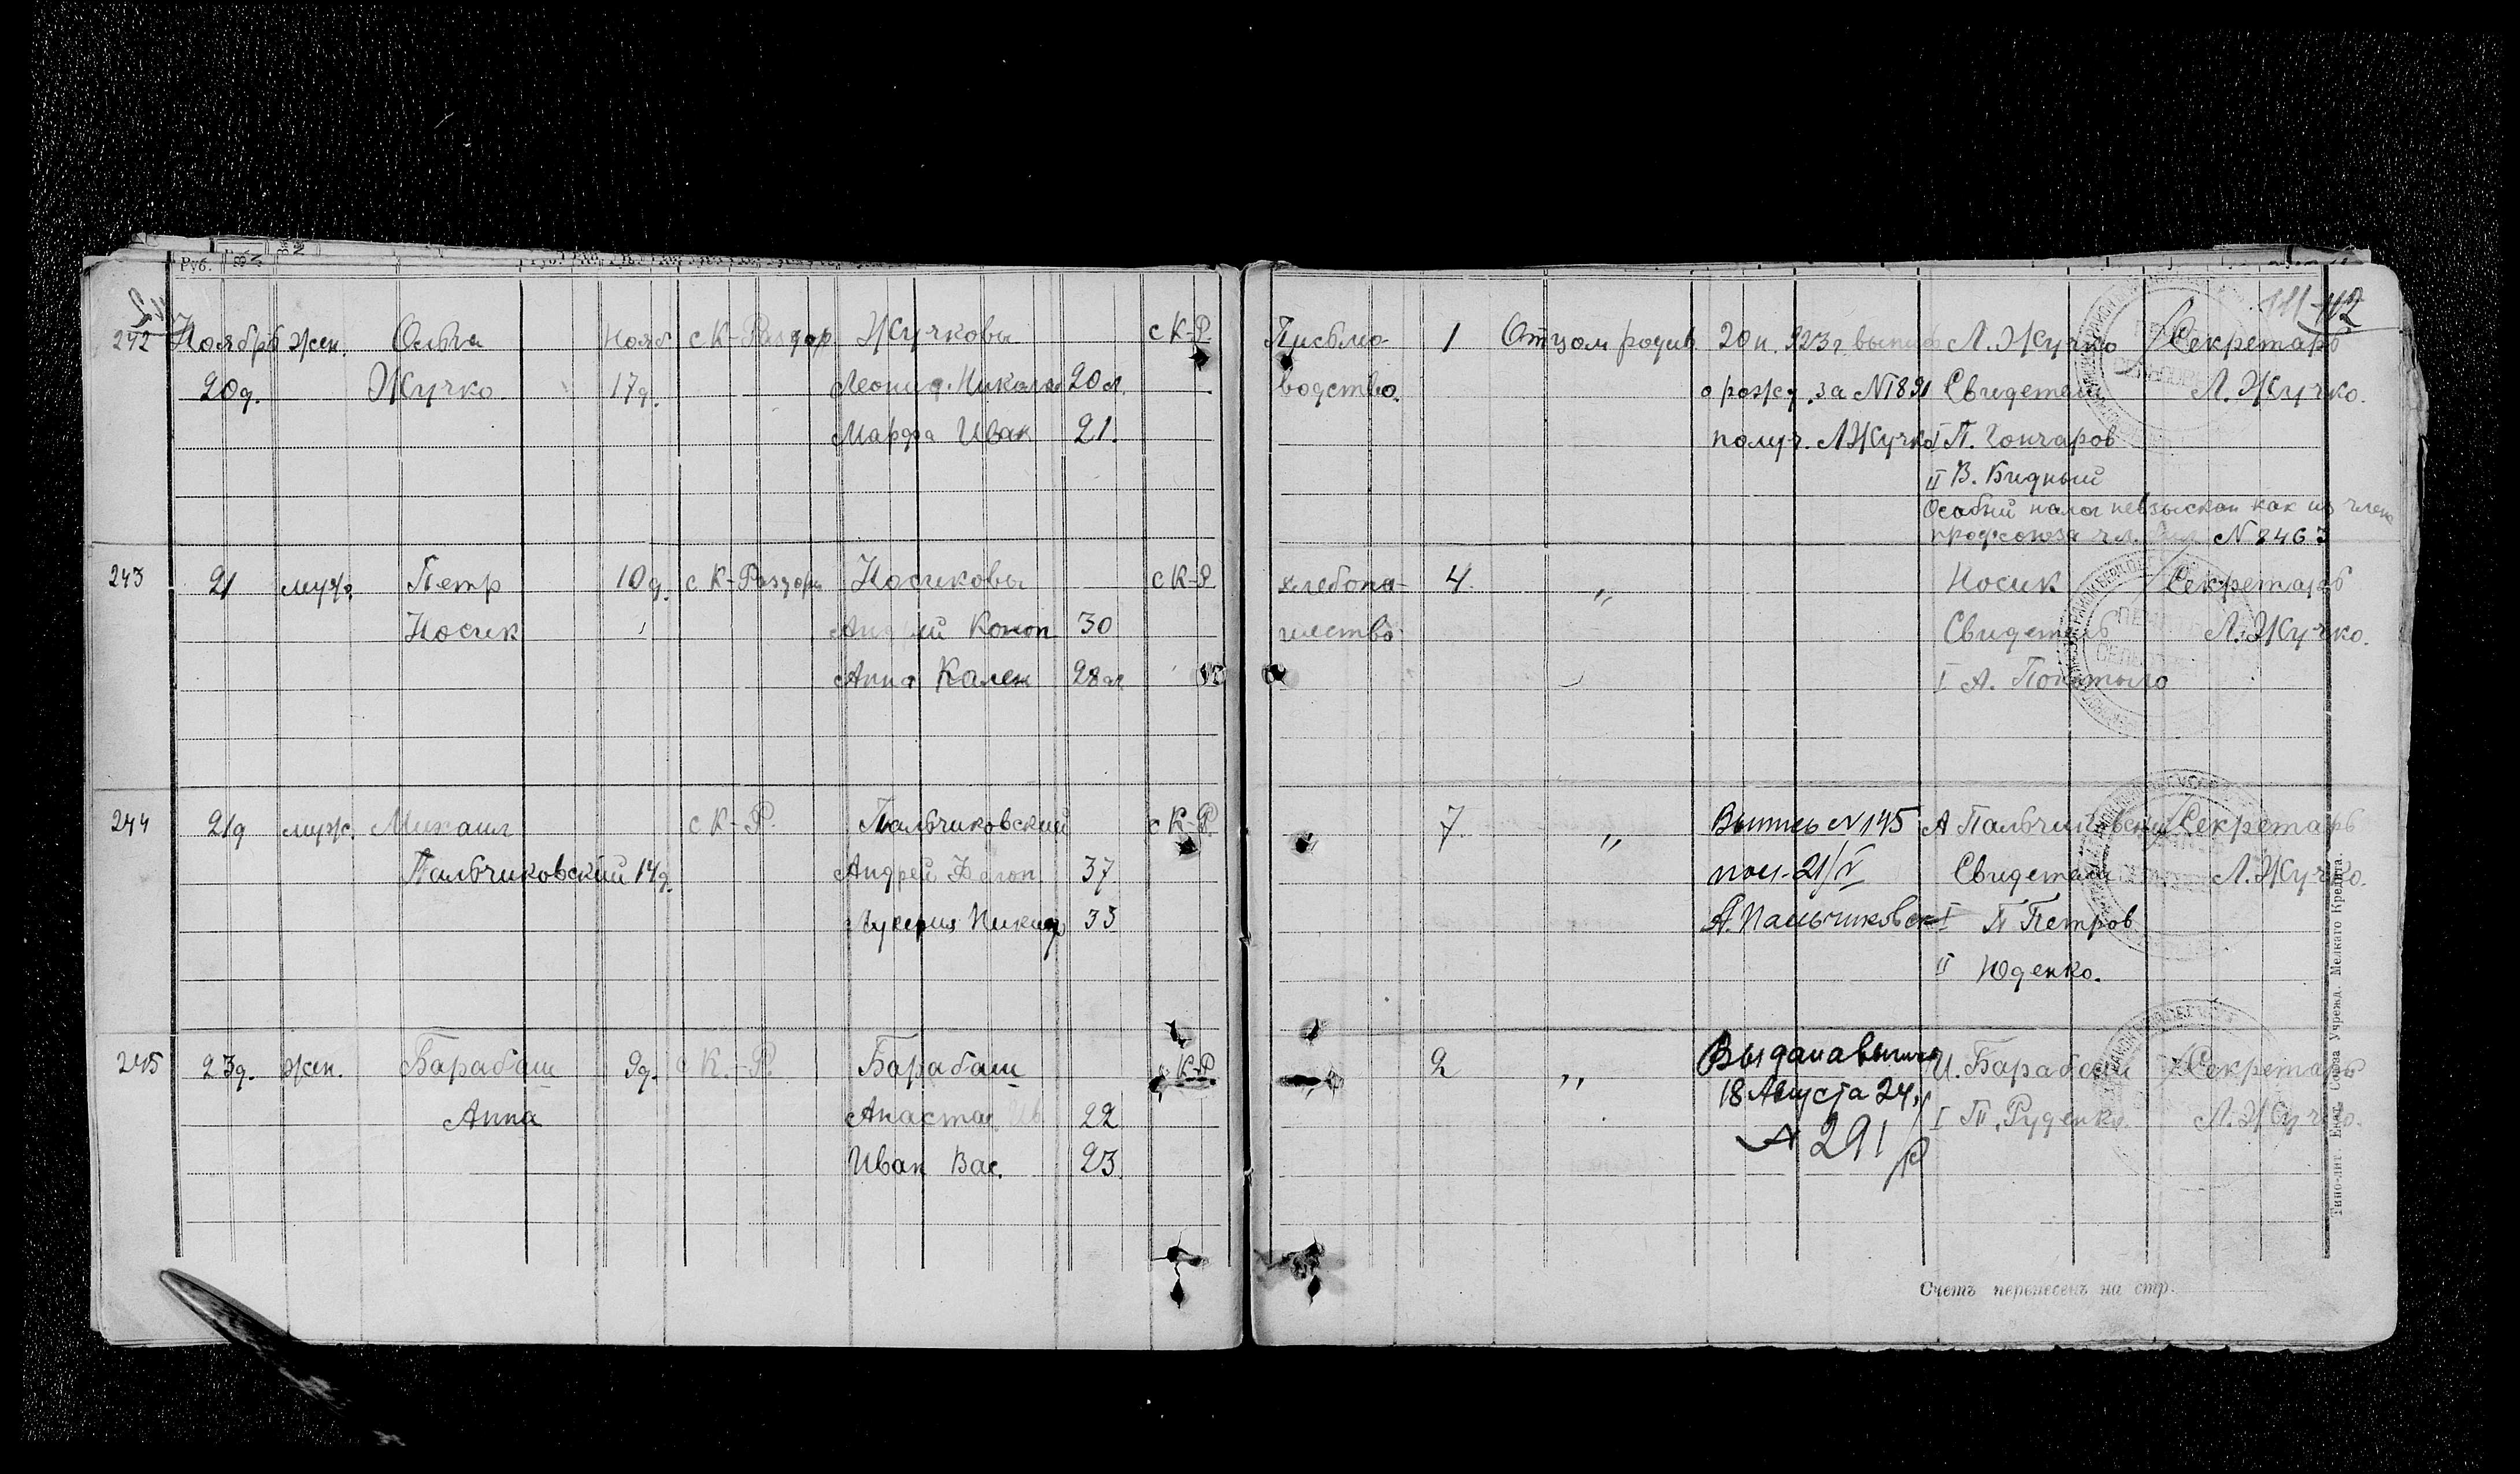 Руб.
112
242 Ноябрь жен. Ольга Нояб с К-Раздор Жучковы с К-Р.
20д. Жучко 17д. Леонид. Никола 20 л.
Марфа Иван 21.
243 21 муж. Петр 10д. с К-Раздоры Носиковы с К-Р
Носик Андрей Конон 30
Анна Кален 28 л.
244 21д муж. Михаил с К-Р. Пальчиковский с К-Р.
Пальчиковский 14д. Андрей 37
Лукерия Никиф 33
245 23д. жен. Барабаш 9д. с К.-Р. Барабаш с К-Р
Анна Анастас 22
Иван Вас. 23.
Письмо- 1 Отцом родив 20 н. 923 г. выпис Л. Жучко Секретарь
водство. о рожд. за № 1891 Свидетели Л. Жучко.
получ. Л Жучко I П. Гончаров
II В. Бидный
Особый налог невзыскан как из члена
профсоюза чл. бил № 8463
хлебопа- 4. „ Носик Секретарь
шество Свидетель Л. Жучко.
I А.
„ 7. „ Выпись № 145 А Пальчиковский Секретарь
пол. 21/V Свидетели Л. Жучко.
А. Пальчиковск I П Петров
II Юденко.
2 „ Выдана выпись И. Барабаш Секретарь
18 Августа 24 г. I П. Руденко. Л. Жучко.
№ 291
Счетъ перенесенъ на стр.
Типо-лит. Екат. Союза Учрежд. Мелкаго Кредита.